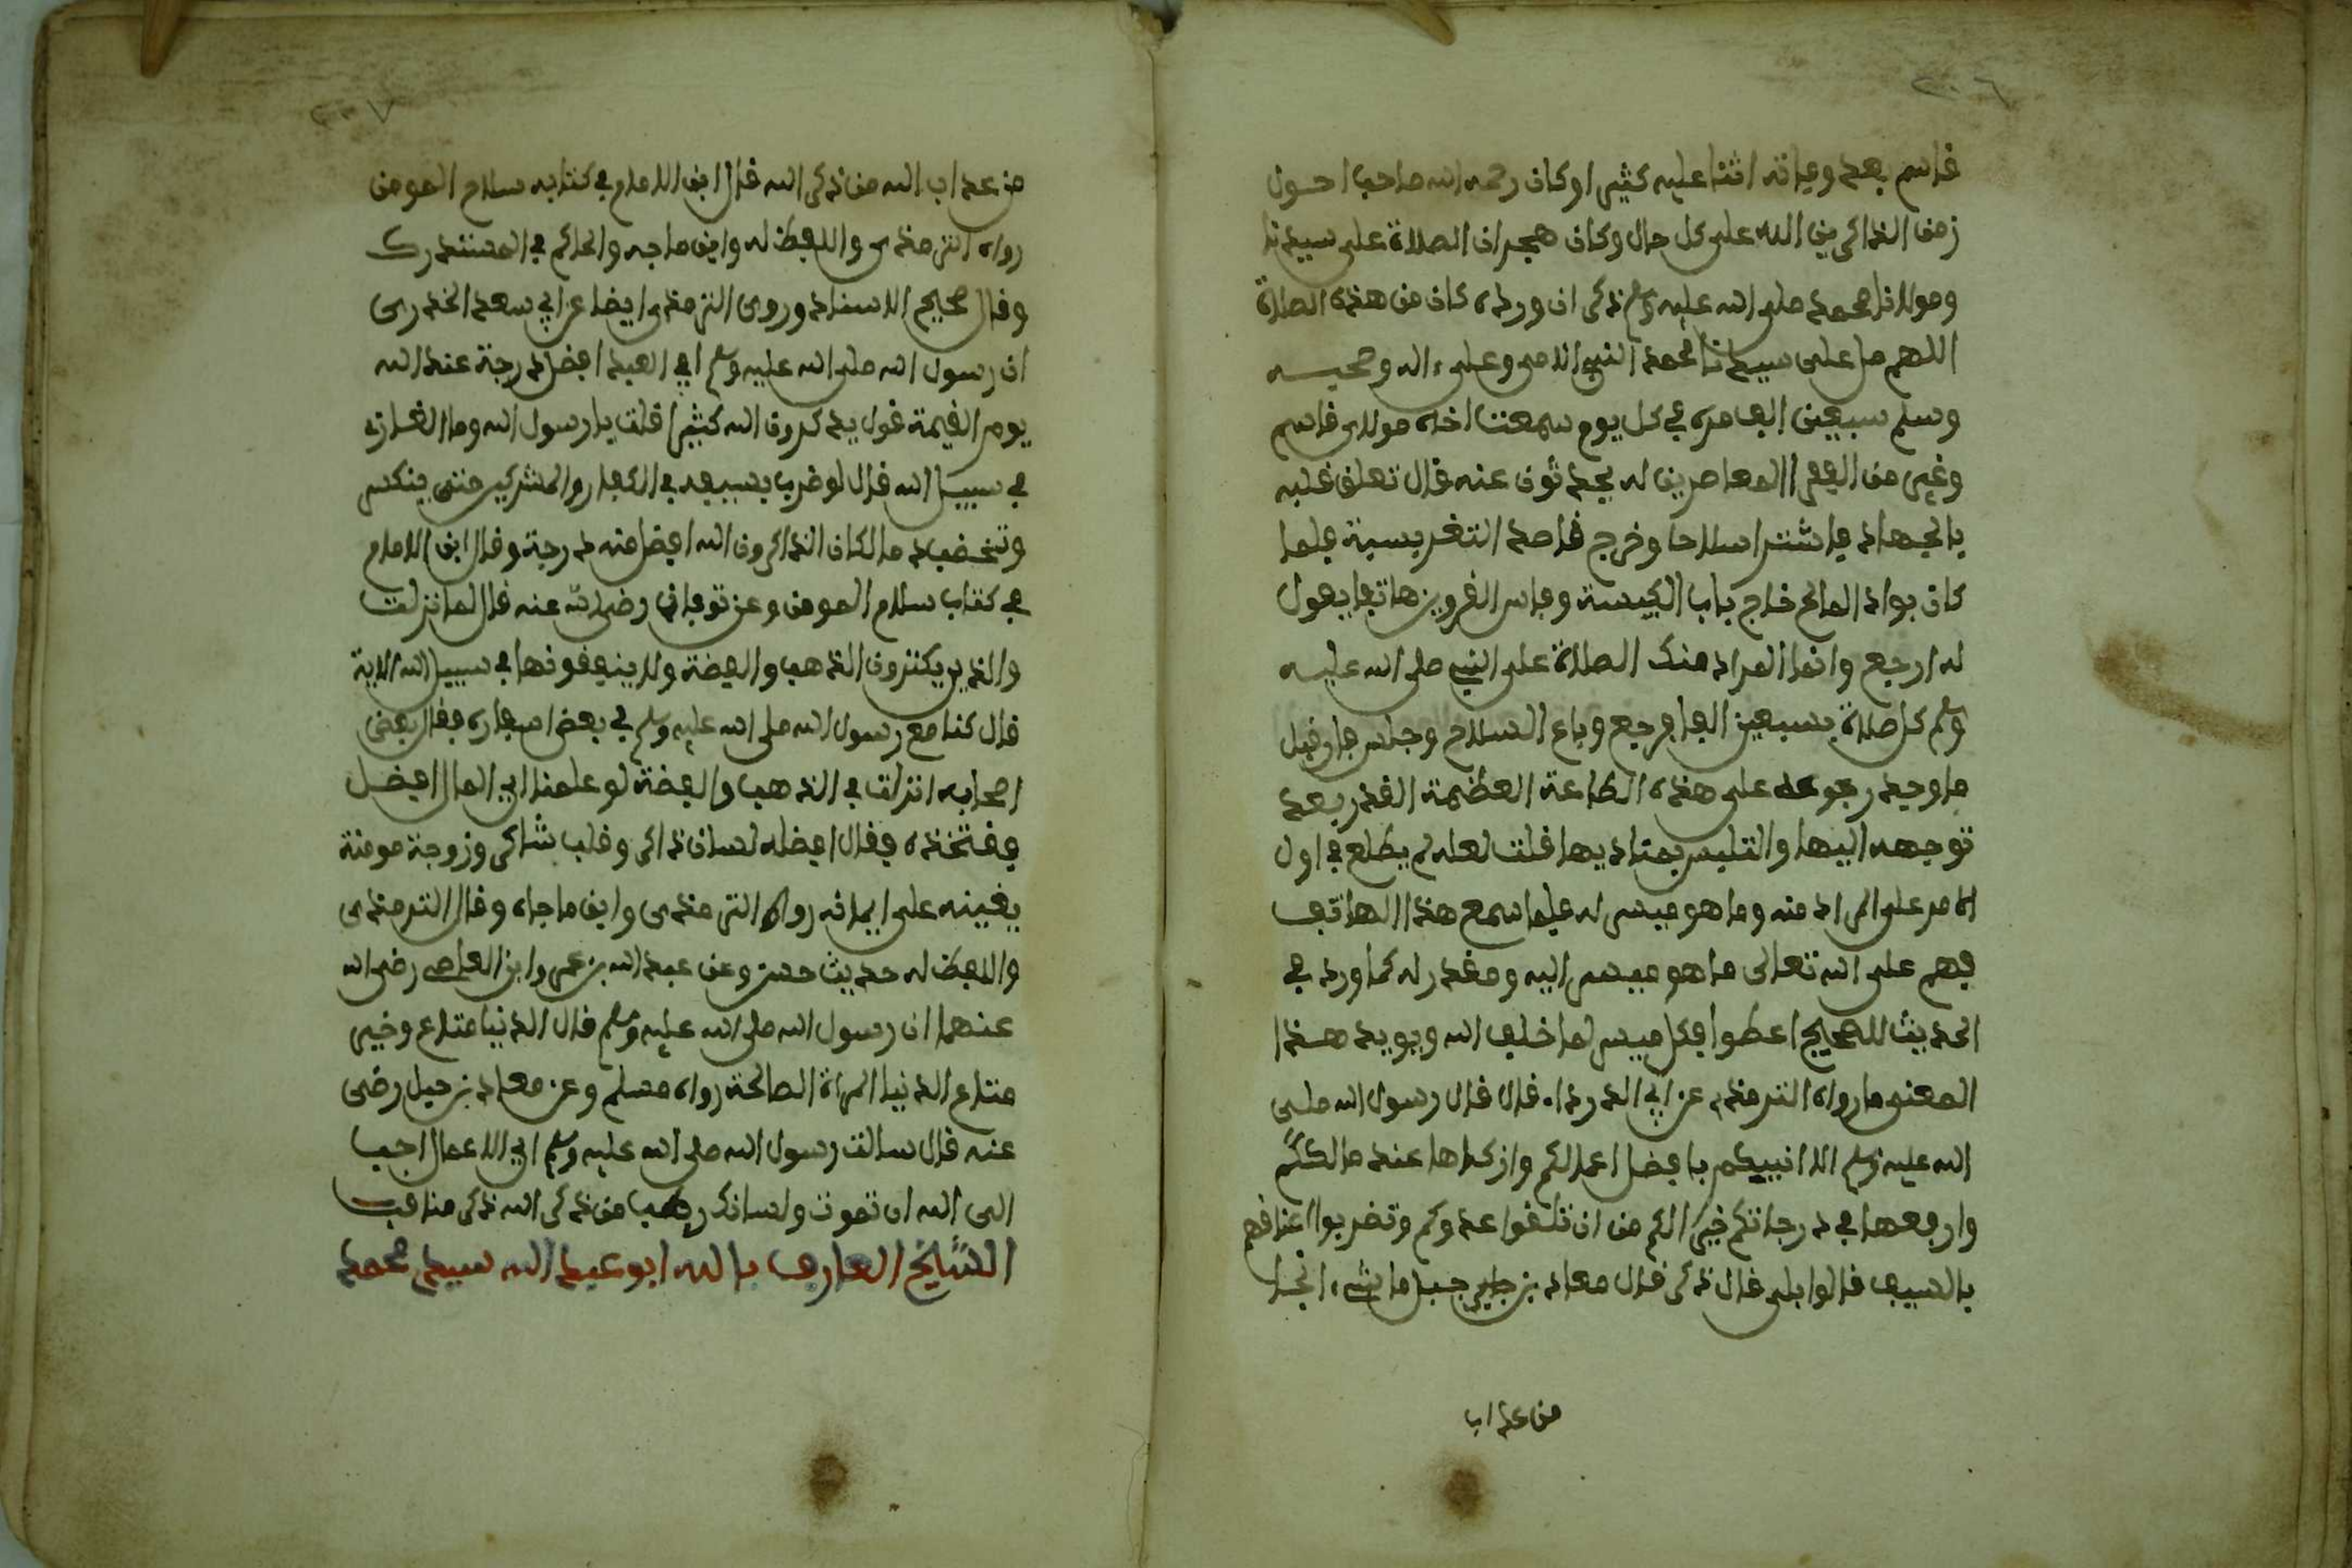 ٢٠٦
قاسم بعد وفاته اثنا عليه كثيرا وكان رحمه الله صاحب احول
زمن الذاكرين الله على كل حال وكان هجيران الصلاة على سيدنا
ومولانا محمد صلى الله عليه وسلم ذكر ان ورده كان من هذه الصلاة
اللهم صل على سيدنا محمد النبي الامي وعلى ءاله وصحبه
وسلم سبعين الف مرة في كل يوم سمعت اخاه مولاي قاسم
وغير من الفقرا المعاصرين له يحدثون عنه قال تعلق قلبه
بالجهاد فاشترا سلاحا وخرج قاصد التغريسية فلما
كان بواد المالح خارج باب الكيسة وفاس القرويين هاتفا يقول
له ارجع وانما المراد منك الصلاة على النبي صلى الله عليه
وسلم كل صلاة بسبعين الفا فرجع وباع السلاح وجلس فان قيل
ما وجه رجوعه على هذه الطاعة العظيمة القدر بعد
توجهه اليها والتلبس بمباديها قلت لعله لم يطلع في اول
الامر على المراد منه وما هو ميسر له فلما سمع هذا الهاتف
فهم على الله تعالى ما هو ميسر اليه ومقدر له كما ورد في
الحديث الصحيح اعملوا فكل ميسر لما خلق الله ويويد هذا
المعنى ما رواه الترمذي عن ابي الدرداء قال قال رسول الله صلى
الله عليه وسلم الا انبيكم بافضل اعمالكم وازكاها عند مالككم
وارفعها في درجاتكم خير الكم من ان تلقوا عدوكم وتضربوا اعناقهم
بالسيف قالوا بلى قال ذكر قال معاد بن جبل ما شيء انجا
من عذاب
٢٠٧
من عذاب الله من ذكر الله قال ابن الامام في كتابه سلاح المومن
رواه الترمذي واللفظ له وابن ماجه والحاكم في المستدرك
وقال صحيح الاسناد وروى الترمذي ايضا عن ابي سعد الخدري
ان رسول الله صلى الله عليه وسلم اي العبد افضل درجة عند الله
يوم القيمة قول يذكرون الله كثيرا قلت يا رسول الله وما الغازي
في سبيل الله قال لو ضرب بسيفه في الكفار والمشركين حتى ينكسر
وتخضب دما لكان الذاكرون الله افضل منه درجة وقال ابن الامام
في كتاب سلاح المومن وعن توفاني رضي الله عنه قال لما نزلت
والذين يكنزون الذهب والفضة ولا ينفقونها في سبيل الله الاية
قال كنا مع رسول الله صلى الله عليه وسلم في بعض اسفاره فقال بعض
اصحابه انزلت في الذهب والفضة لو علمنا اي المال افضل
فنتخذه فقال افضله لسان ذاكر وقلب شاكر وزوجة مومنة
يعينه على ايمانه رواه الترمذي وابن ماجاه وقال الترمذي
واللفظ له حديث حسن وعن عبد الله بن عمر وابن العاصي رضي الله
عنهما ان رسول الله صلى الله عليه وسلم قال الدنيا متاع وخير
متاع الدنيا المراة الصالحة رواه مسلم وعن معاد بن جبل رضي
عنه قال سالت رسول الله صلى الله عليه وسلم اي الاعمال احب
الى الله ان تموت ولسانك رطب من ذكر الله ذكر مناقب
الشيخ العارف بالله ابو عبد الله سيد محمد